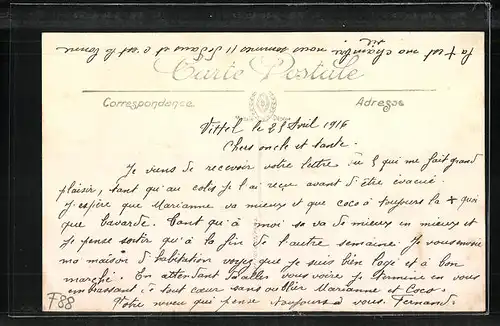 la + est ma chambre nous sommes 11 dedans et c'est le bonne
Carte Postale
Correspondance
Adresse
Vittel le 25 Avril 1916
Chers oncle et tante.
Je viens de recevoir votre lettre du 8 qui me fait grand
plaisir, tant qu'au colis je l'ai reçu avant d'être évacué.
J'espère que Marianne va mieux et que coco a toujours la + qui
que bavarde. Tant qu'à moi sa va de mieux en mieux et
je pense sortir qu'à la fin de l'autre semaine. Je vous envoie
ma maison d'habitation voyez que je suis bien logé et à bon
marché. En attendant d'aller vous voire je termine en vous
embrassant à tout cœur sans oublier Marianne et Coco.
Votre neveu qui pense toujours à vous. Fernand.
F88